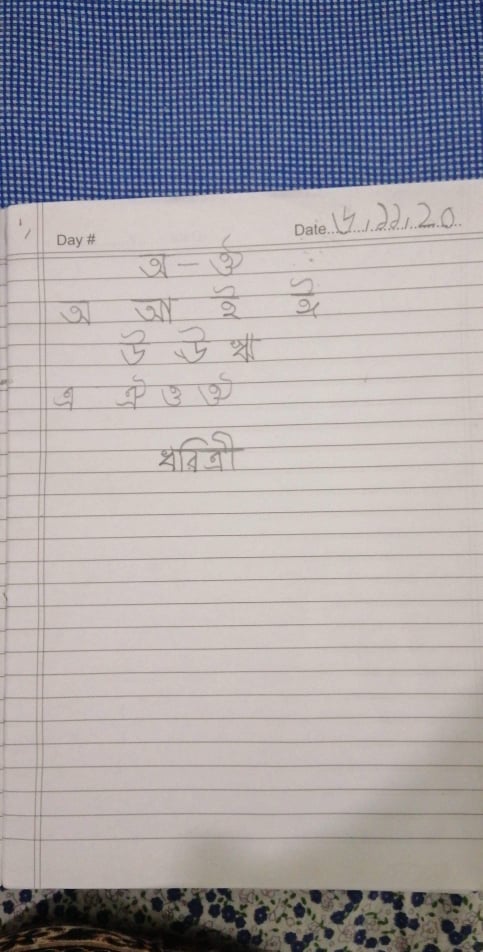 Day # Date.. ৮.১১.২০
অ - ঔ
অ আ ই ঈ
উ ঊ ঋ
এ ঐ ও ঔ
ধরিত্রী